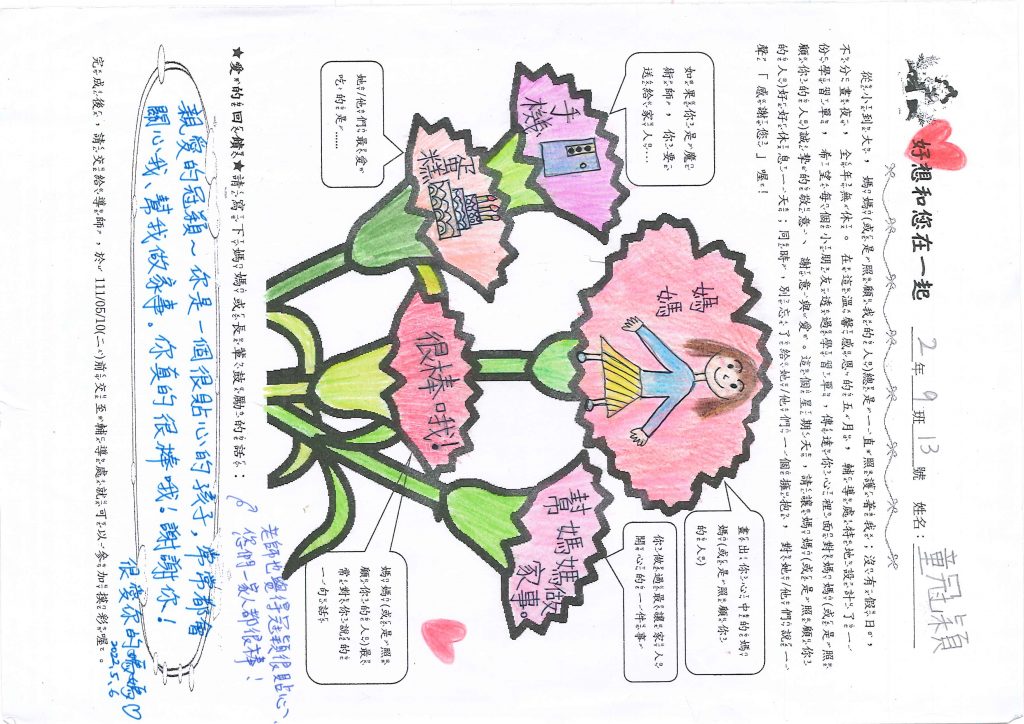 好想和您在一起 2年9班13號 姓名：董冠穎
從小到大，媽媽(或是照顧我的人)總是一直照護著我；沒有假日，
不分晝夜，全年無休。在這溫馨感恩的五月，輔導處特地設計了一
份學習單，希望每個小朋友透過學習單，傳達你心裡面對媽媽(或是照
顧你的人)誠摯的敬意、謝意與愛。這個星期天，請讓媽媽(或是照顧你
的人)好好休息一天；同時，別忘了給她/他們一個擁抱，對她/他們說一
聲「感謝您」喔！
如果你是魔
術師，你要
送給家人…
手機
媽媽
畫出你心中的媽
媽(或是照顧你
的人)
她/他們最愛
吃的是……
蛋糕
很棒哦!
幫媽媽做
家事。
你做過最讓家人
開心的一件事
媽媽(或是照
顧你的人)最
常對你說的
一句話
★愛的回饋★請寫下媽媽或長輩鼓勵的話：
老師也覺得冠穎很貼心、
您們一家人都很棒！
親愛的冠穎～你是一個很貼心的孩子，常常都會
關心我、幫我做家事。你真的很棒哦！謝謝你！
很愛你的媽媽♡
2022.5.6
完成後，請交給導師，於111/05/10(二)前交至輔導處就可以參加摸彩喔。